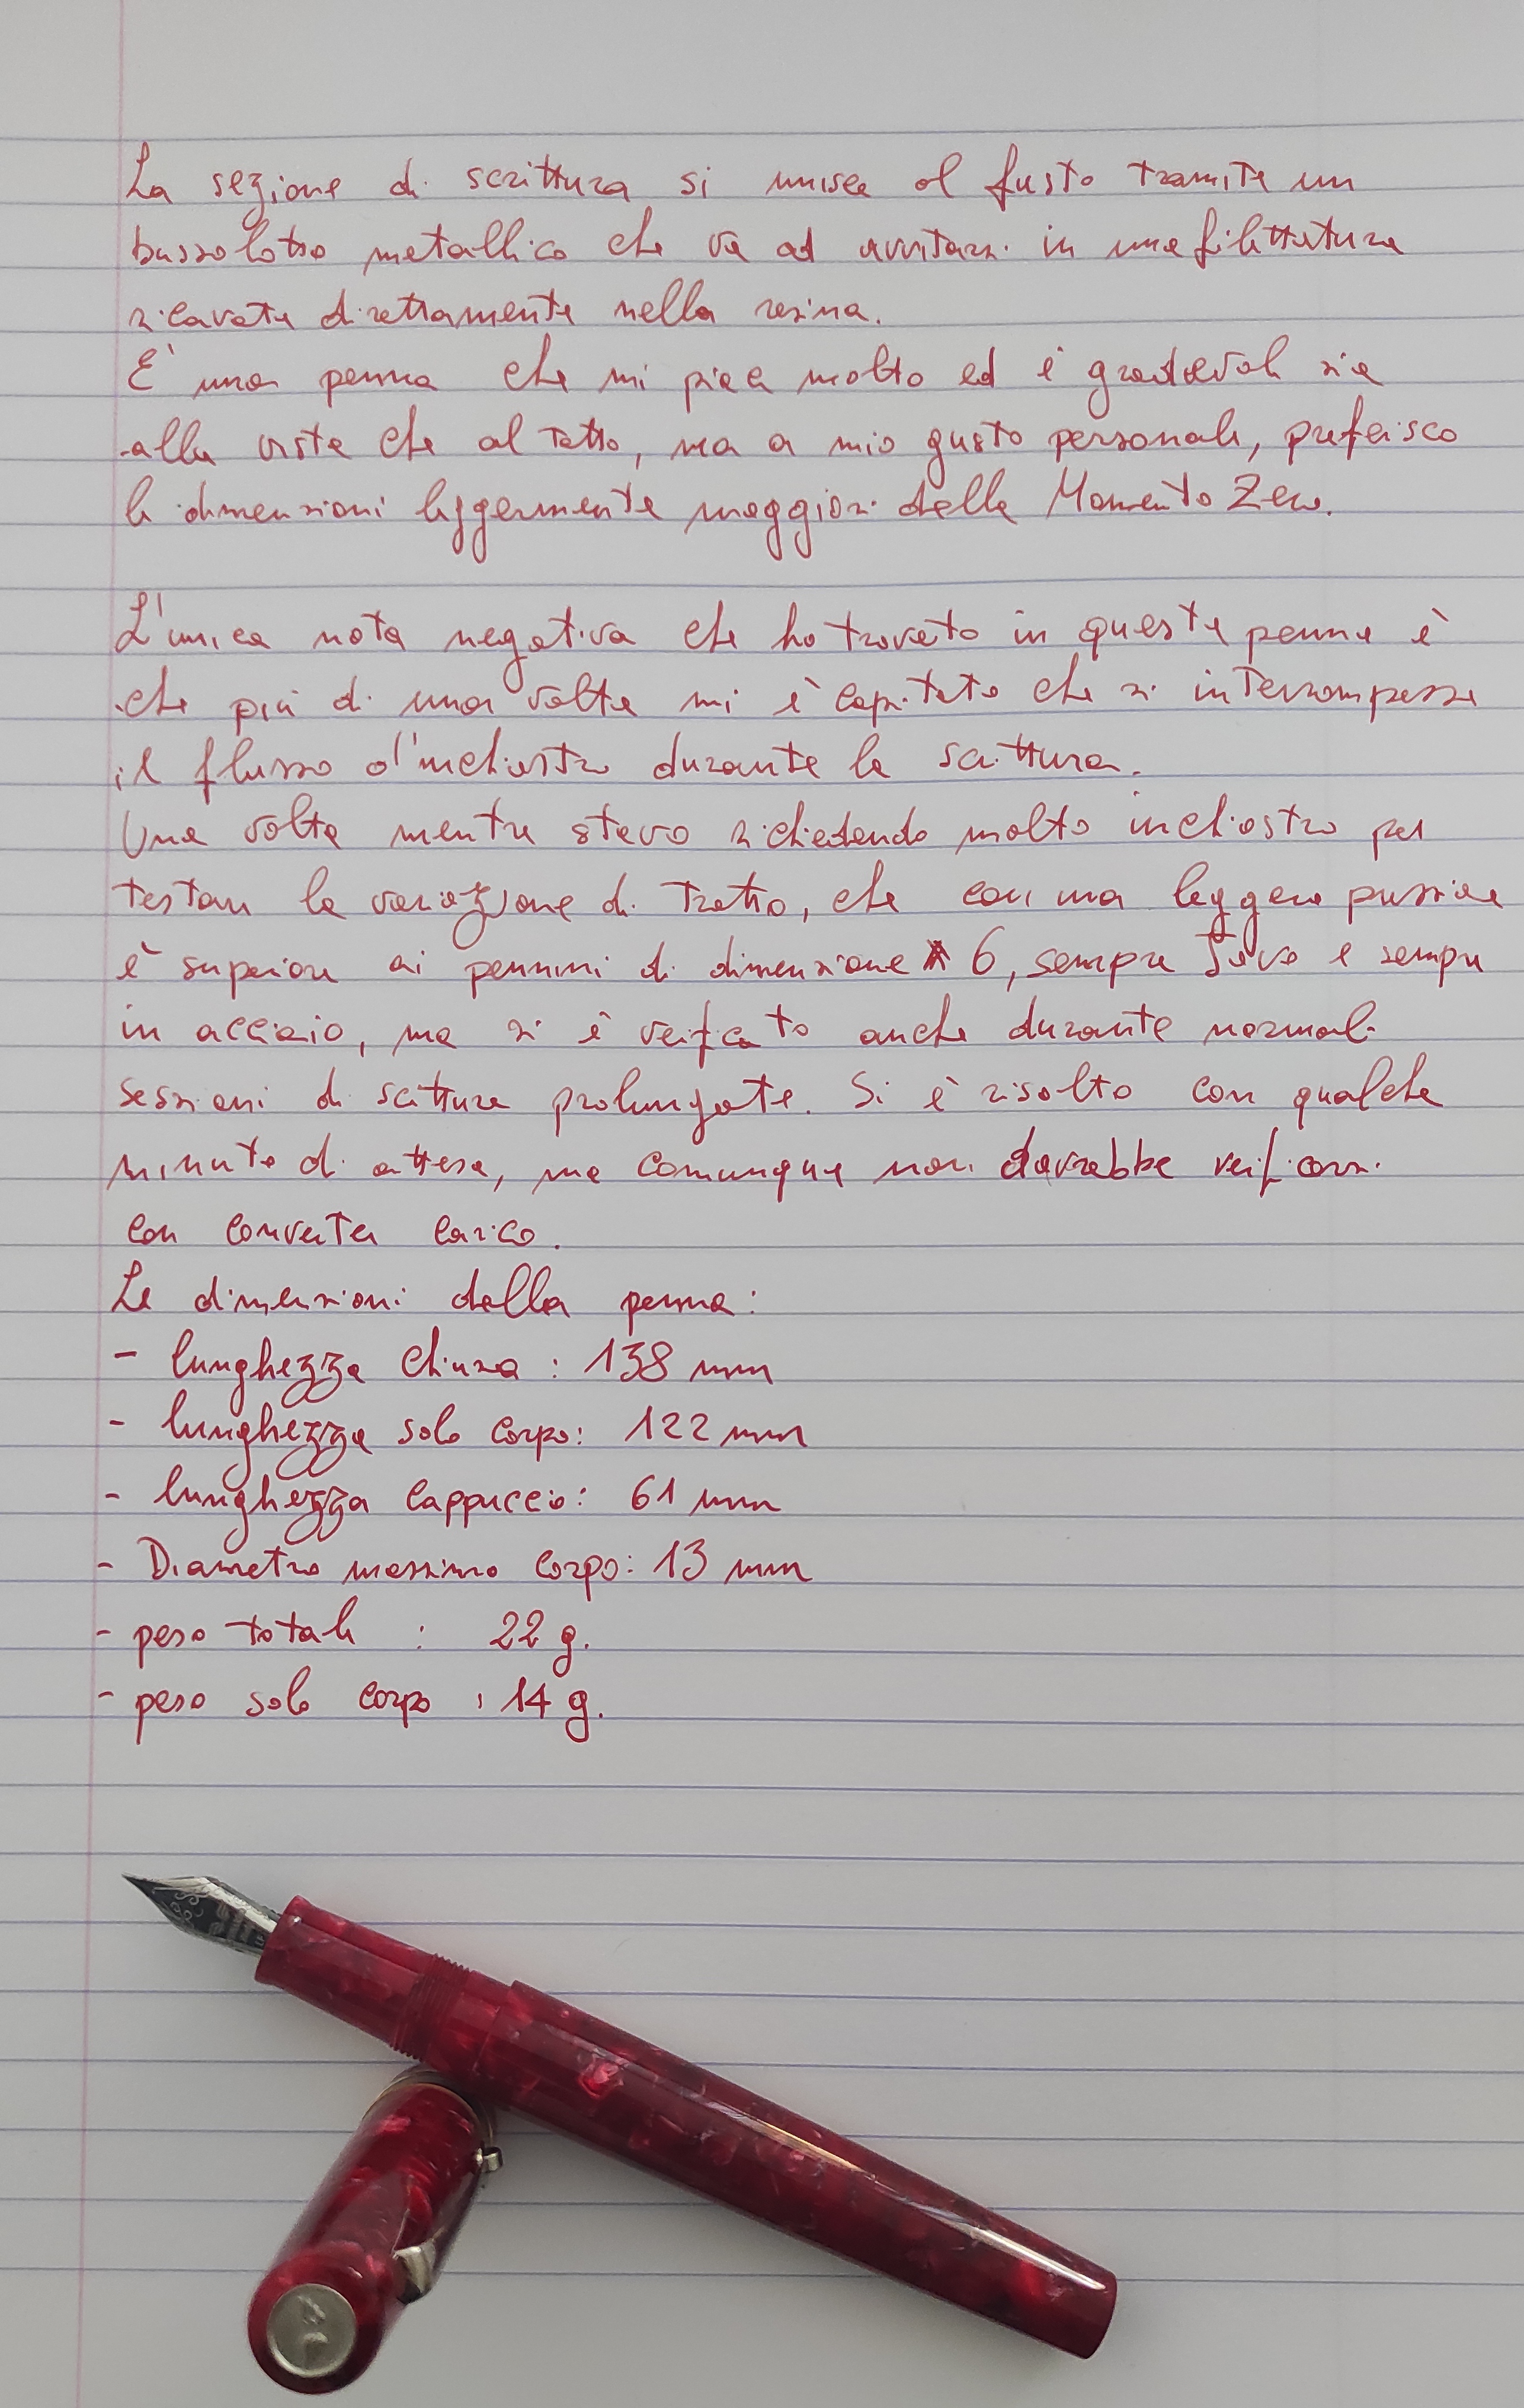 La sezione di scrittura si unisce al fusto tramite un
bussolotto metallico che va ad avvitarsi in una filettatura
ricavata direttamente nella resina.
E' una penna che mi piace molto ed è gradevole sia
alla vista che al tatto, ma a mio gusto personale, preferisco
le dimensioni leggermente maggiori della Momento Zero.
L'unica nota negativa che ho trovato in questa penna è
che più di una volta mi è capitato che si interrompesse
il flusso d'inchiostro durante la scrittura.
Una volta mentre stavo richiedendo molto inchiostro per
testare la variazione di tratto, che con una leggera pressione
è superiore ai pennini di dimensione 6, sempre Jowo e sempre
in acciaio, ma si è verificato anche durante normali
sessioni di scrittura prolungate. Si è risolto con qualche
minuto di attesa, ma comunque non dovrebbe verificarsi
con converter carico.
Le dimensioni della penna:
- lunghezza chiusa : 138 mm
- lunghezza solo corpo: 122 mm
- lunghezza cappuccio: 61 mm
- Diametro massimo corpo: 13 mm
- peso totale : 22 g.
- peso solo corpo : 14 g.